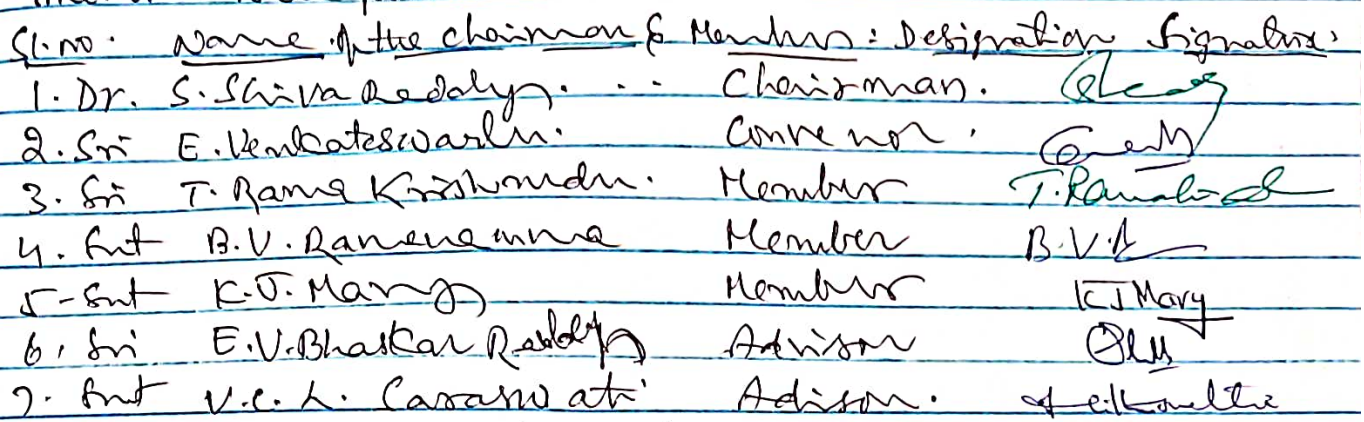 Sl.no. Name of the chairman & Members: Designation Signature:
1. Dr. S. Shiva Reddy. .. Chairman.
2. Sri E. Venkateswarlu. Convenor.
3. Sri T. Rama Krishnudu. Member
4. Smt B.V. Ramanamma Member B.V.R
5- Smt K.J. Mary Member KJ Mary
6. Sri E.V. Bhaskar Reddy Advisor
7. Smt V.C.L. Saraswati Adisor.